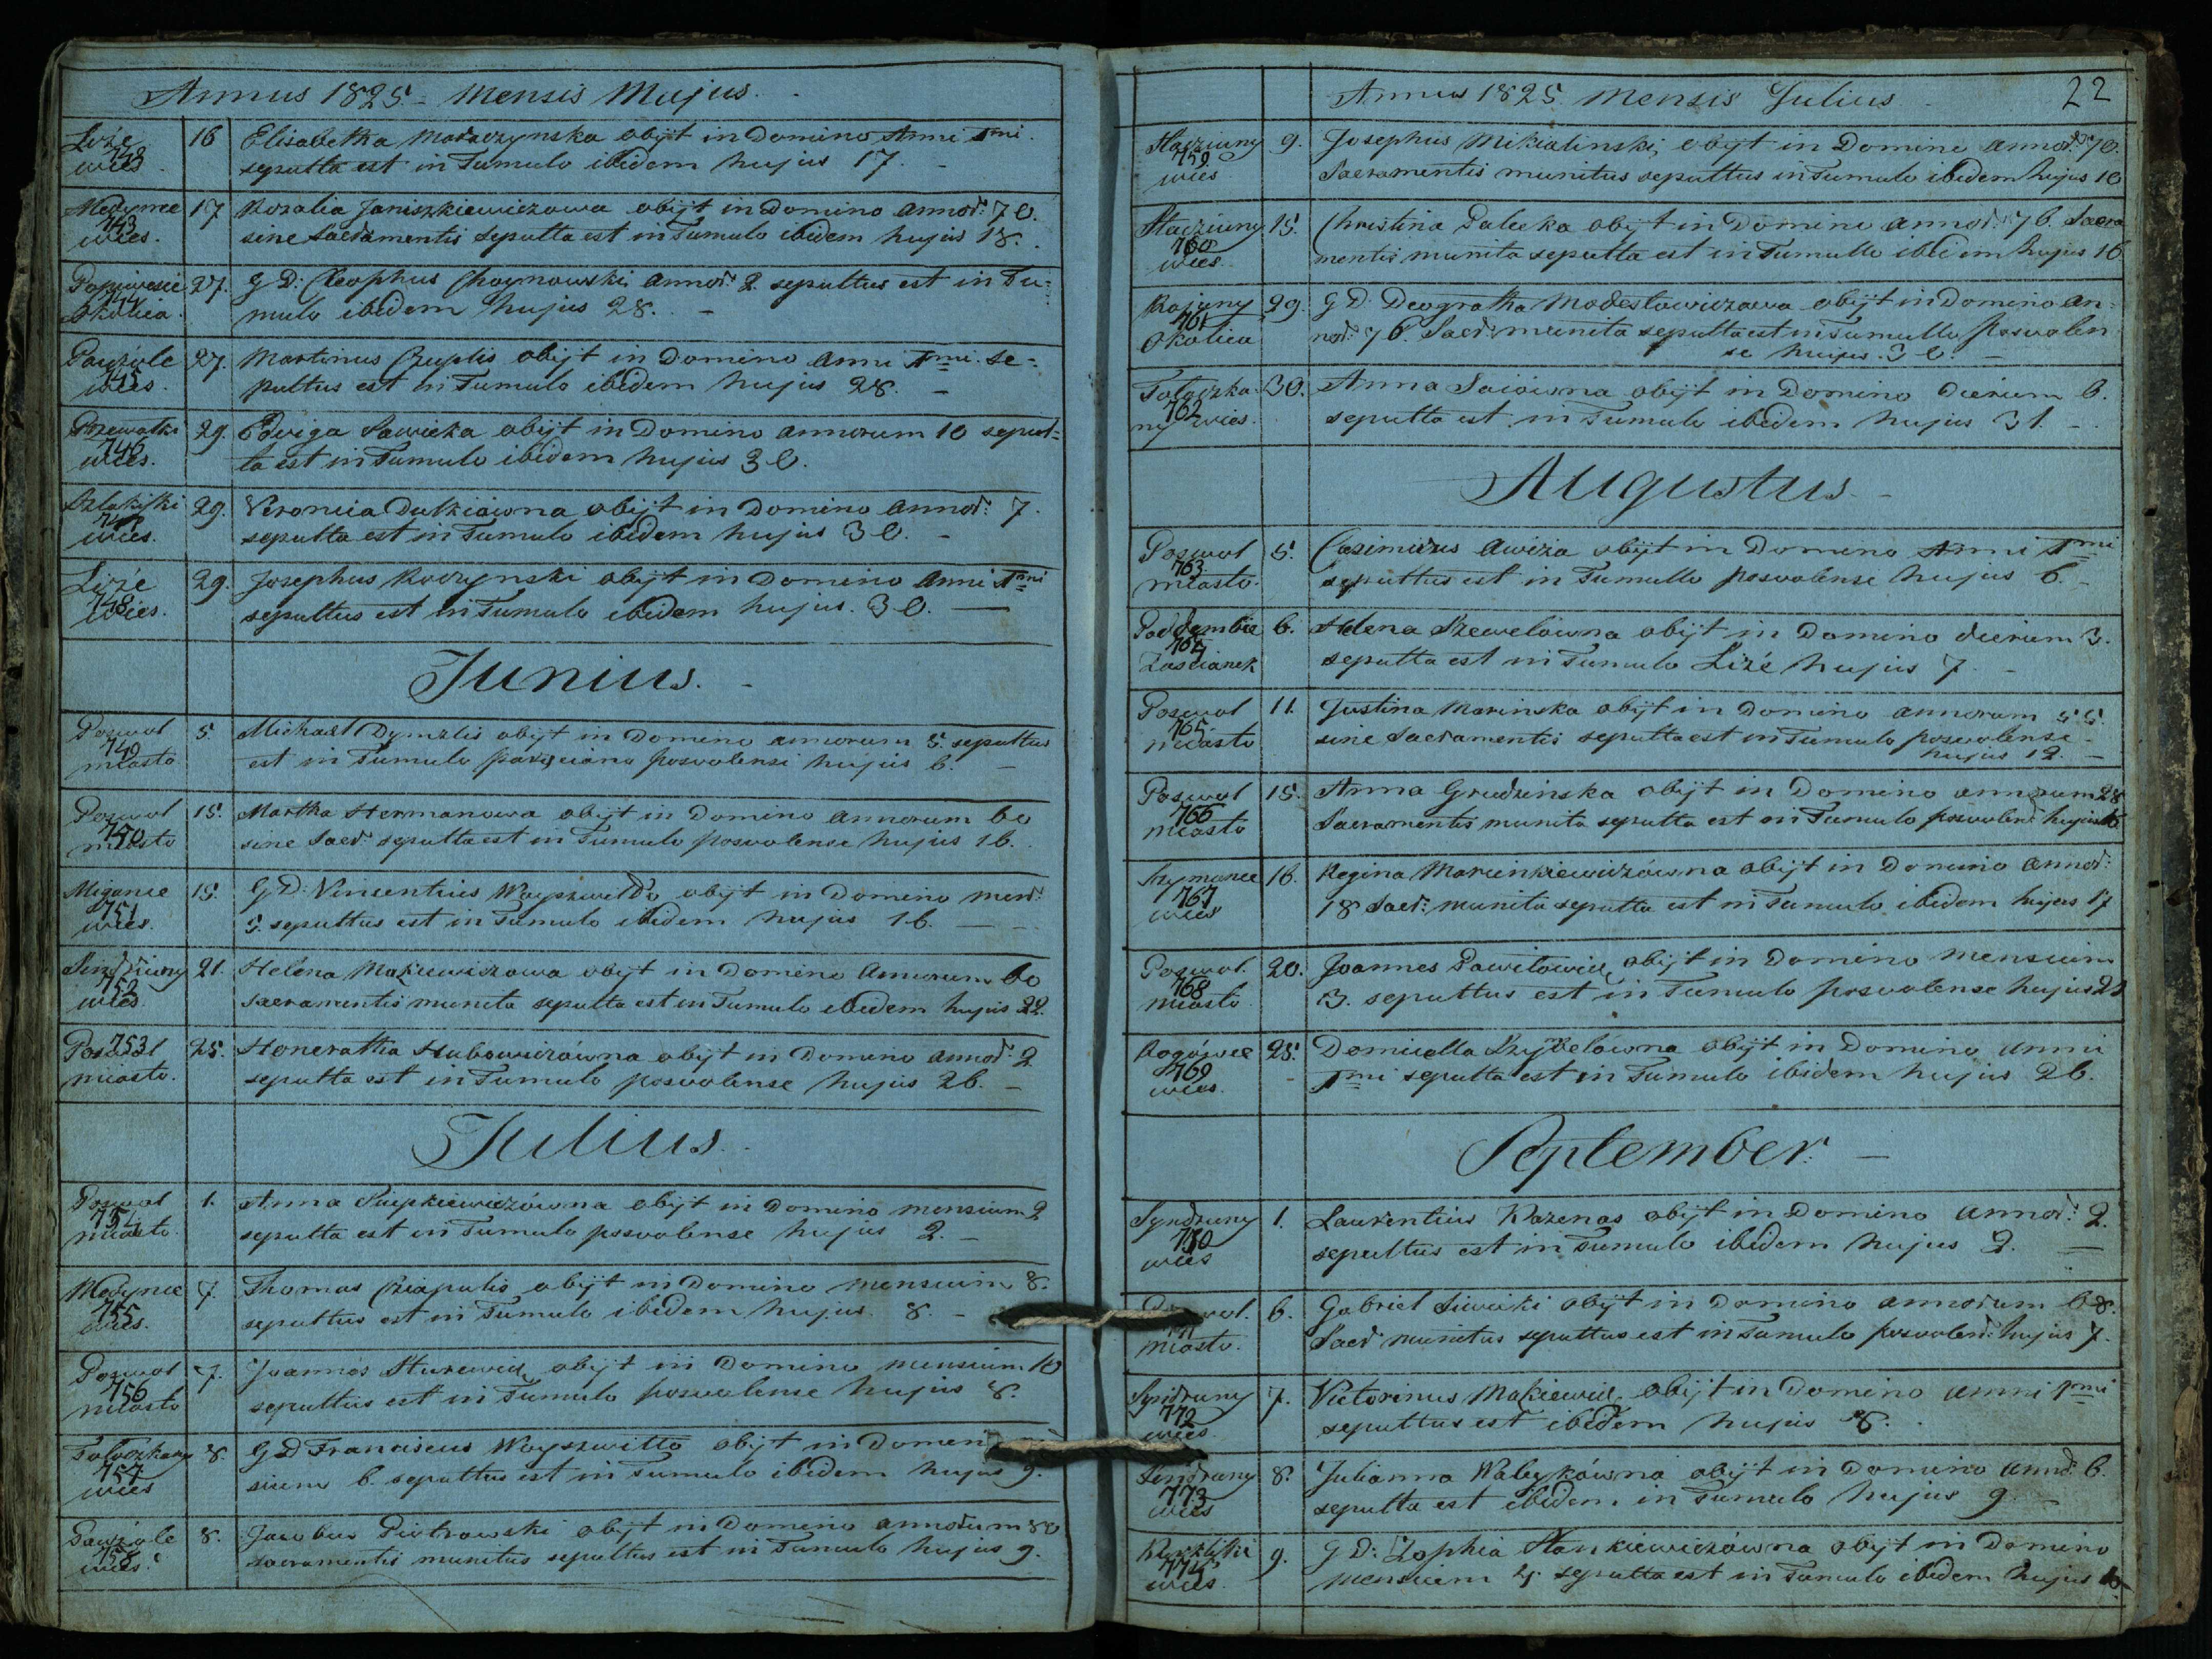 Annus 1825 = Mensis Majus.
Liże 16 Elisabetha Maraczynska obijt in Domino Anni 1mi.
742
wies. sepulta est in Tumulo ibidem hujus 17. -
17 Rozalia Janiszkiewiczowa obijt in Domino annor: 70.
743
wies. sine Sacramentis sepulta est in Tumulo ibidem hujus 18.
27. G D: Cleophus Choynowski annor 2 sepultus est in Tu=
744
okolica. mulo ibidem hujus 28. -
27. Martinus obijt in Domino anni 1mi. se=
745
wies. pultus est in Tumulo ibidem hujus 28. -
29. Edviga Sawicka obijt in Domino annorum 10 sepul=
746
wies. ta est in Tumulo ibidem hujus 30.
29. Veronica Dulkiówna obijt in Domino annor: 7.
wies. sepulta est in Tumulo ibidem hujus 30. -
Liże 29. Josephus Roczynski obijt in Domino Anni 1mi
748
wies. sepultus est in Tumulo ibidem hujus. 30. —
Junius. -
Poswol 5. Michael Dymzlis obijt in Domino annorum 5. sepultus
749
miasto est in Tumulo posvolense hujus 6. -
Poswol 15. Martha Hermanowa obijt in Domino annorum 60
miasto sine Sacr: sepulta est in Tumulo posvolense hujus 16.
15. G D: Vincentius Woyszwiłło obijt in Domino men:
751
wies. 5. sepultus est in Tumulo ibidem hujus 16. —
21. Helena Mackiewiczowa obijt in Domino annorum 60
752
wies. sacramentis munita sepulta est in Tumulo ibidem hujus 22.
Poswol 25. Honeratha Hubowiczówna obijt in Domino annor: 2
753
miasto. sepulta est in Tumulo posvolense hujus 26. -
Julius.
Poswol 1. Anna obijt in Domino mensium 2
754
miasto. sepulta est in Tumulo posvolense hujus 2. -
7. Thomas obijt in Domino mensium 8.
755
wies. sepultus est in Tumulo ibidem hujus. 8. -
Poswol 7. Joannes obijt in Domino mensium 10
756
miasto sepultus est in Tumulo posvolense hujus 8.
8. G D Franciscus Woyszwiłło obijt in Domin
757
wies sium 6. sepultus est in Tumulo ibidem hujus 9.
8. Jacobus Piotrowski obijt in Domino annorum 80
758
wies. sacramentis munitus sepultus est in Tumulo hujus 9.
22
Annus 1825. Mensis Julius
Staczuny 9. Josephus Mikialinski obijt in Domino annor: 70.
759
wies Sacramentis munitus sepultus in Tumulo ibidem hujus 10
Staczuny 15. Christina Palecka obijt in Domino annor: 76. Sacra
760
wies. mentis munita sepulta est in Tumullo ibidem hujus 16
29. G D: Deogratha Modestowiczowa obijt in Domino an=
761
Okolica nor: 76. Sacr: munita sepulta est in Tumullo posvolen
se hujus. 30. -
30. Anna obijt in Domino dierum 6.
762
wies. sepulta est in Tumulo ibidem hujus 31. -
Augustus. -
Poswol 5. Casimirus Awiża obijt in Domino Anni 1mi
763
miasto. sepultus est in Tumullo posvolense hujus 6. -
6. Helena Szewelówna obijt in Domino dierum 3.
764
Zascianek sepulta est in Tumulo Liże hujus 7. -
Poswol 11. Justina Marinska obijt in Domino annorum 55.
765
miasto sine Sacramentis sepulta est in Tumulo posvolense -
hujus 12. -
Poswol 15. Anna Grudzinska obijt in Domino annorum 28
766
miasto Sacramentis munita sepulta est in Tumulo posvolen: hujus 16
16. Regina Marcinkiewiczówna obijt in Domino annor:
767
wies 18 Sacr: munita sepulta est in Tumulo ibidem hujus 17
Poswol. 20. Joannes Pawiłowicz obijt in Domino mensium
768
miasto 3. sepultus est in Tumulo posvolense hujus 21
25. Domicella Szybelówna obijt in Domino anni
769
wies. 1mi sepulta est in Tumulo ibidem hujus 26.
September. —
Syndruny 1. Laurentius Kazenas obijt in Domino annor: 2.
wies sepultus est in Tumulo ibidem hujus 2. —
6. Gabriel obijt in Domino annorum 68.
miasto. Sacr: munitus sepultus est in Tumulo posvolen: hujus 7.
Syndruny 7. Victorinus Mackiewicz obijt in Domino anni 1mi
772
wies. sepultus est ibidem hujus 8.
8. Julianna Wabykówna obijt in Domino annor: 6.
773
wies sepulta est ibidem in Tumulo hujus 9. -
9. G D: Zophia Stankiewiczówna obijt in Domino
774
wies. mensium 4. sepulta est in Tumulo ibidem hujus 10